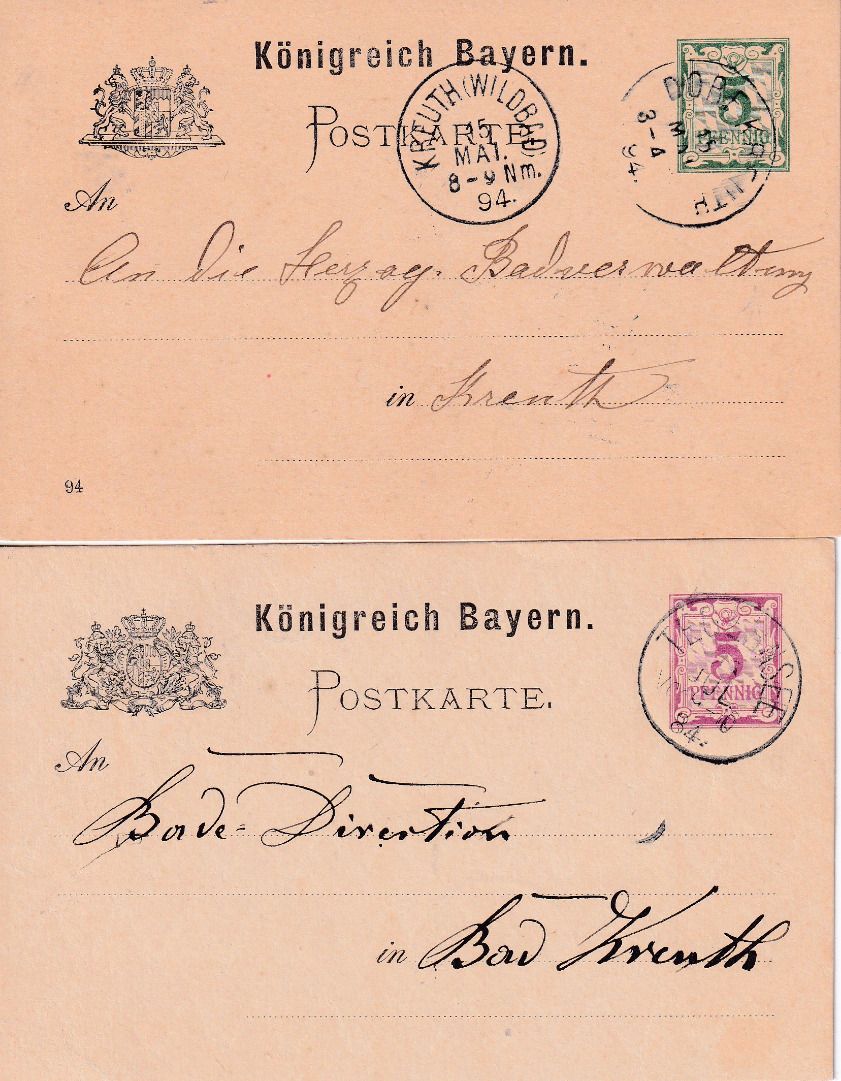 Königreich Bayern.
POSTKARTE.
KREUTH (WILDBAD)
15
MAI.
8-9 Nm.
94.
5
PFENNIG
15
3-4
94.
An
An die Herzog. Badverwaltung
in Kreuth
94
Königreich Bayern.
POSTKARTE.
5
PFENNIG
JUL
84.
An
Bade-Direction
in Bad Kreuth